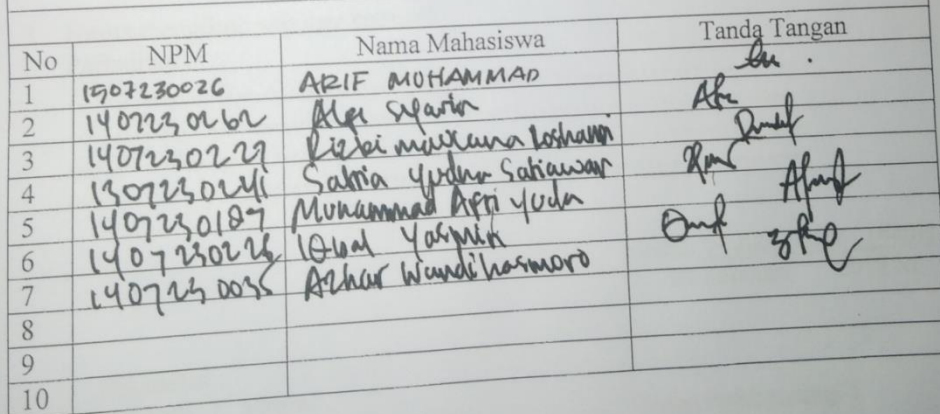 No NPM Nama Mahasiswa Tanda Tangan
1 1507230026 ARIF MUHAMMAD
2 1407230262 Alga
3 1407230227 Rizki maulana
4 1307230241 Satria Yudha Setiawan
5 1407230187 Muhammad Apri Yuda
6 1407230223 Iqbal Yasmin
7 1407230035 Azhar Wandihasmoro
8
9
10